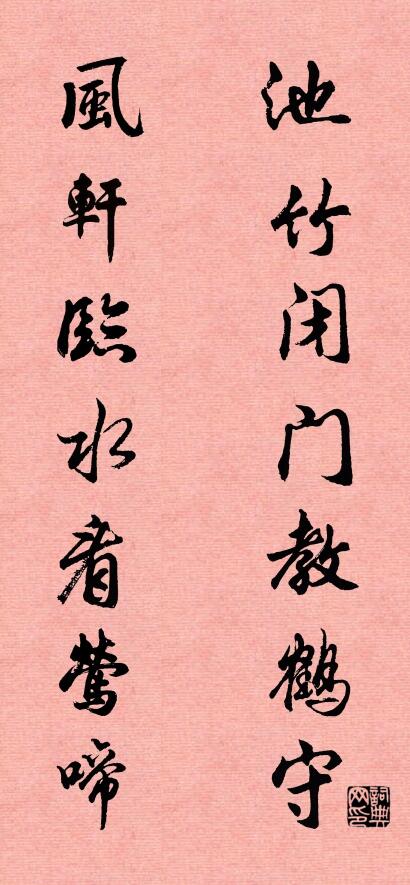 池竹闭门教鹤守
風軒臨水看鶯啼
詞典网印